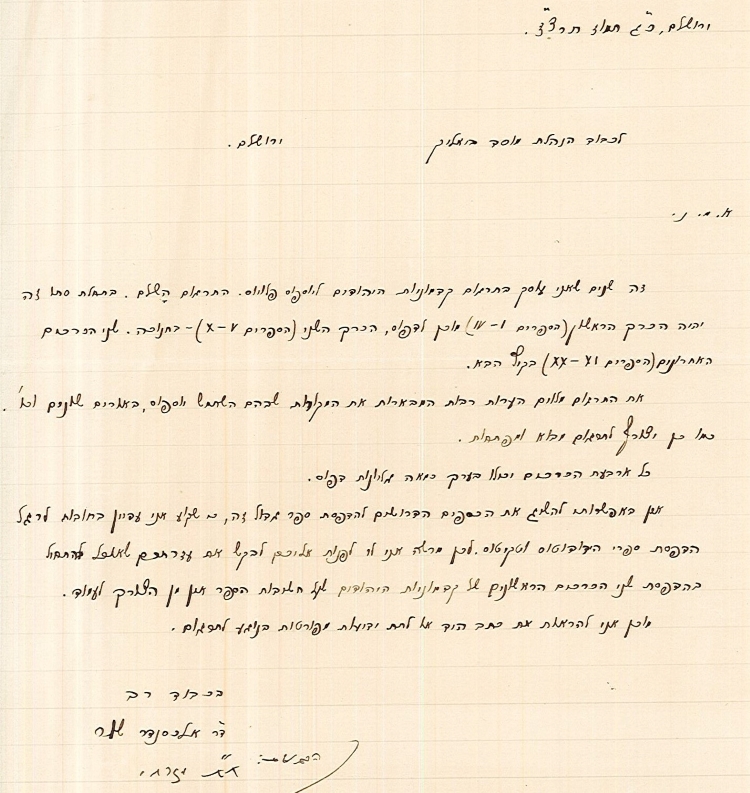 ירושלם, כ"ג תמוז תרצ"ד.
לכבוד הנהלת מוסד ביאליק ירושלם.
א. מ. נ.
זה שנים שאני עוסק בתרגום קדמוניות היהודים ליוסיפוס פלוויוס. התרגום השלם. בתחלת סתו זה
יהיה הכרך הראשון (הספרים I–IV) מוכן לדפוס, הכרך השני (הספרים V–X) – בחנוכה. שני הכרכים
האחרונים (הספרים XI–XX) בקיץ הבא.
את התרגום מלוות הערות רבות המבארות את המקורות שבהם השתמש יוספוס, באורים שונים וכו'.
כמו כן יצורף לתרגום מבוא ומפתחות.
כל ארבעת הכרכים יכילו בערך כמאה גליונות דפוס.
אין באפשרותי להשיג את הכספים הדרושים להדפסת ספר גדול זה, כי שקוע אני עדיין בחובות לרגל
הדפסת ספרי הירודוטוס וטקיטוס. לכן מרשה אני לי לפנות אליכם לבקש את עזרתכם שאוכל להתחיל
בהדפסת שני הכרכים הראשונים של קדמוניות היהודים שעל חשיבות הספר אין מן הצורך לעמוד.
מוכן אני להראות את כתב היד או לתת ידיעות מפורטות בנוגע לתרגום.
בכבוד רב
ד"ר אלכסנדר שור
הכתובת: